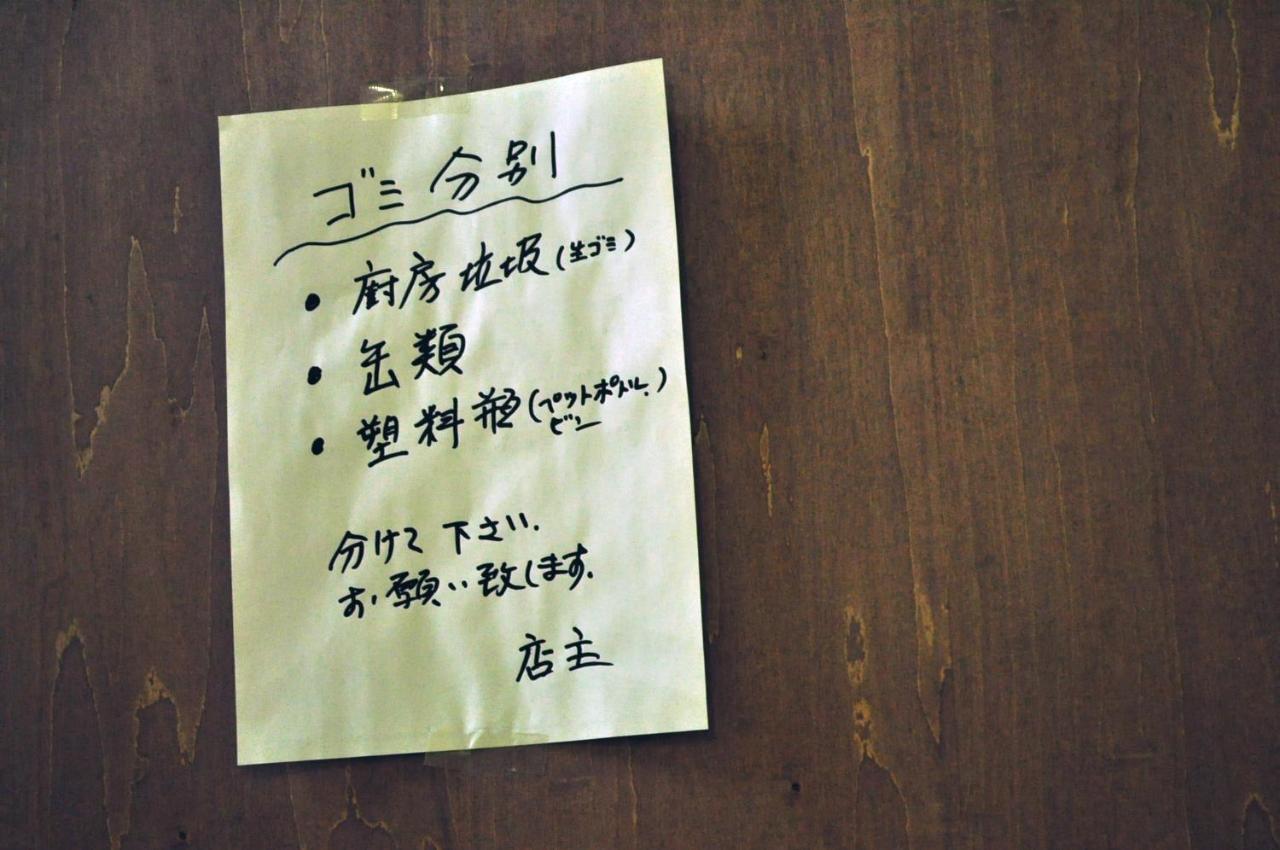 ゴミ分別
・厨房垃圾(生ゴミ)
・缶類
・塑料瓶(ペットボトル.ビン)
分けて下さい.
お願い致します.
店主